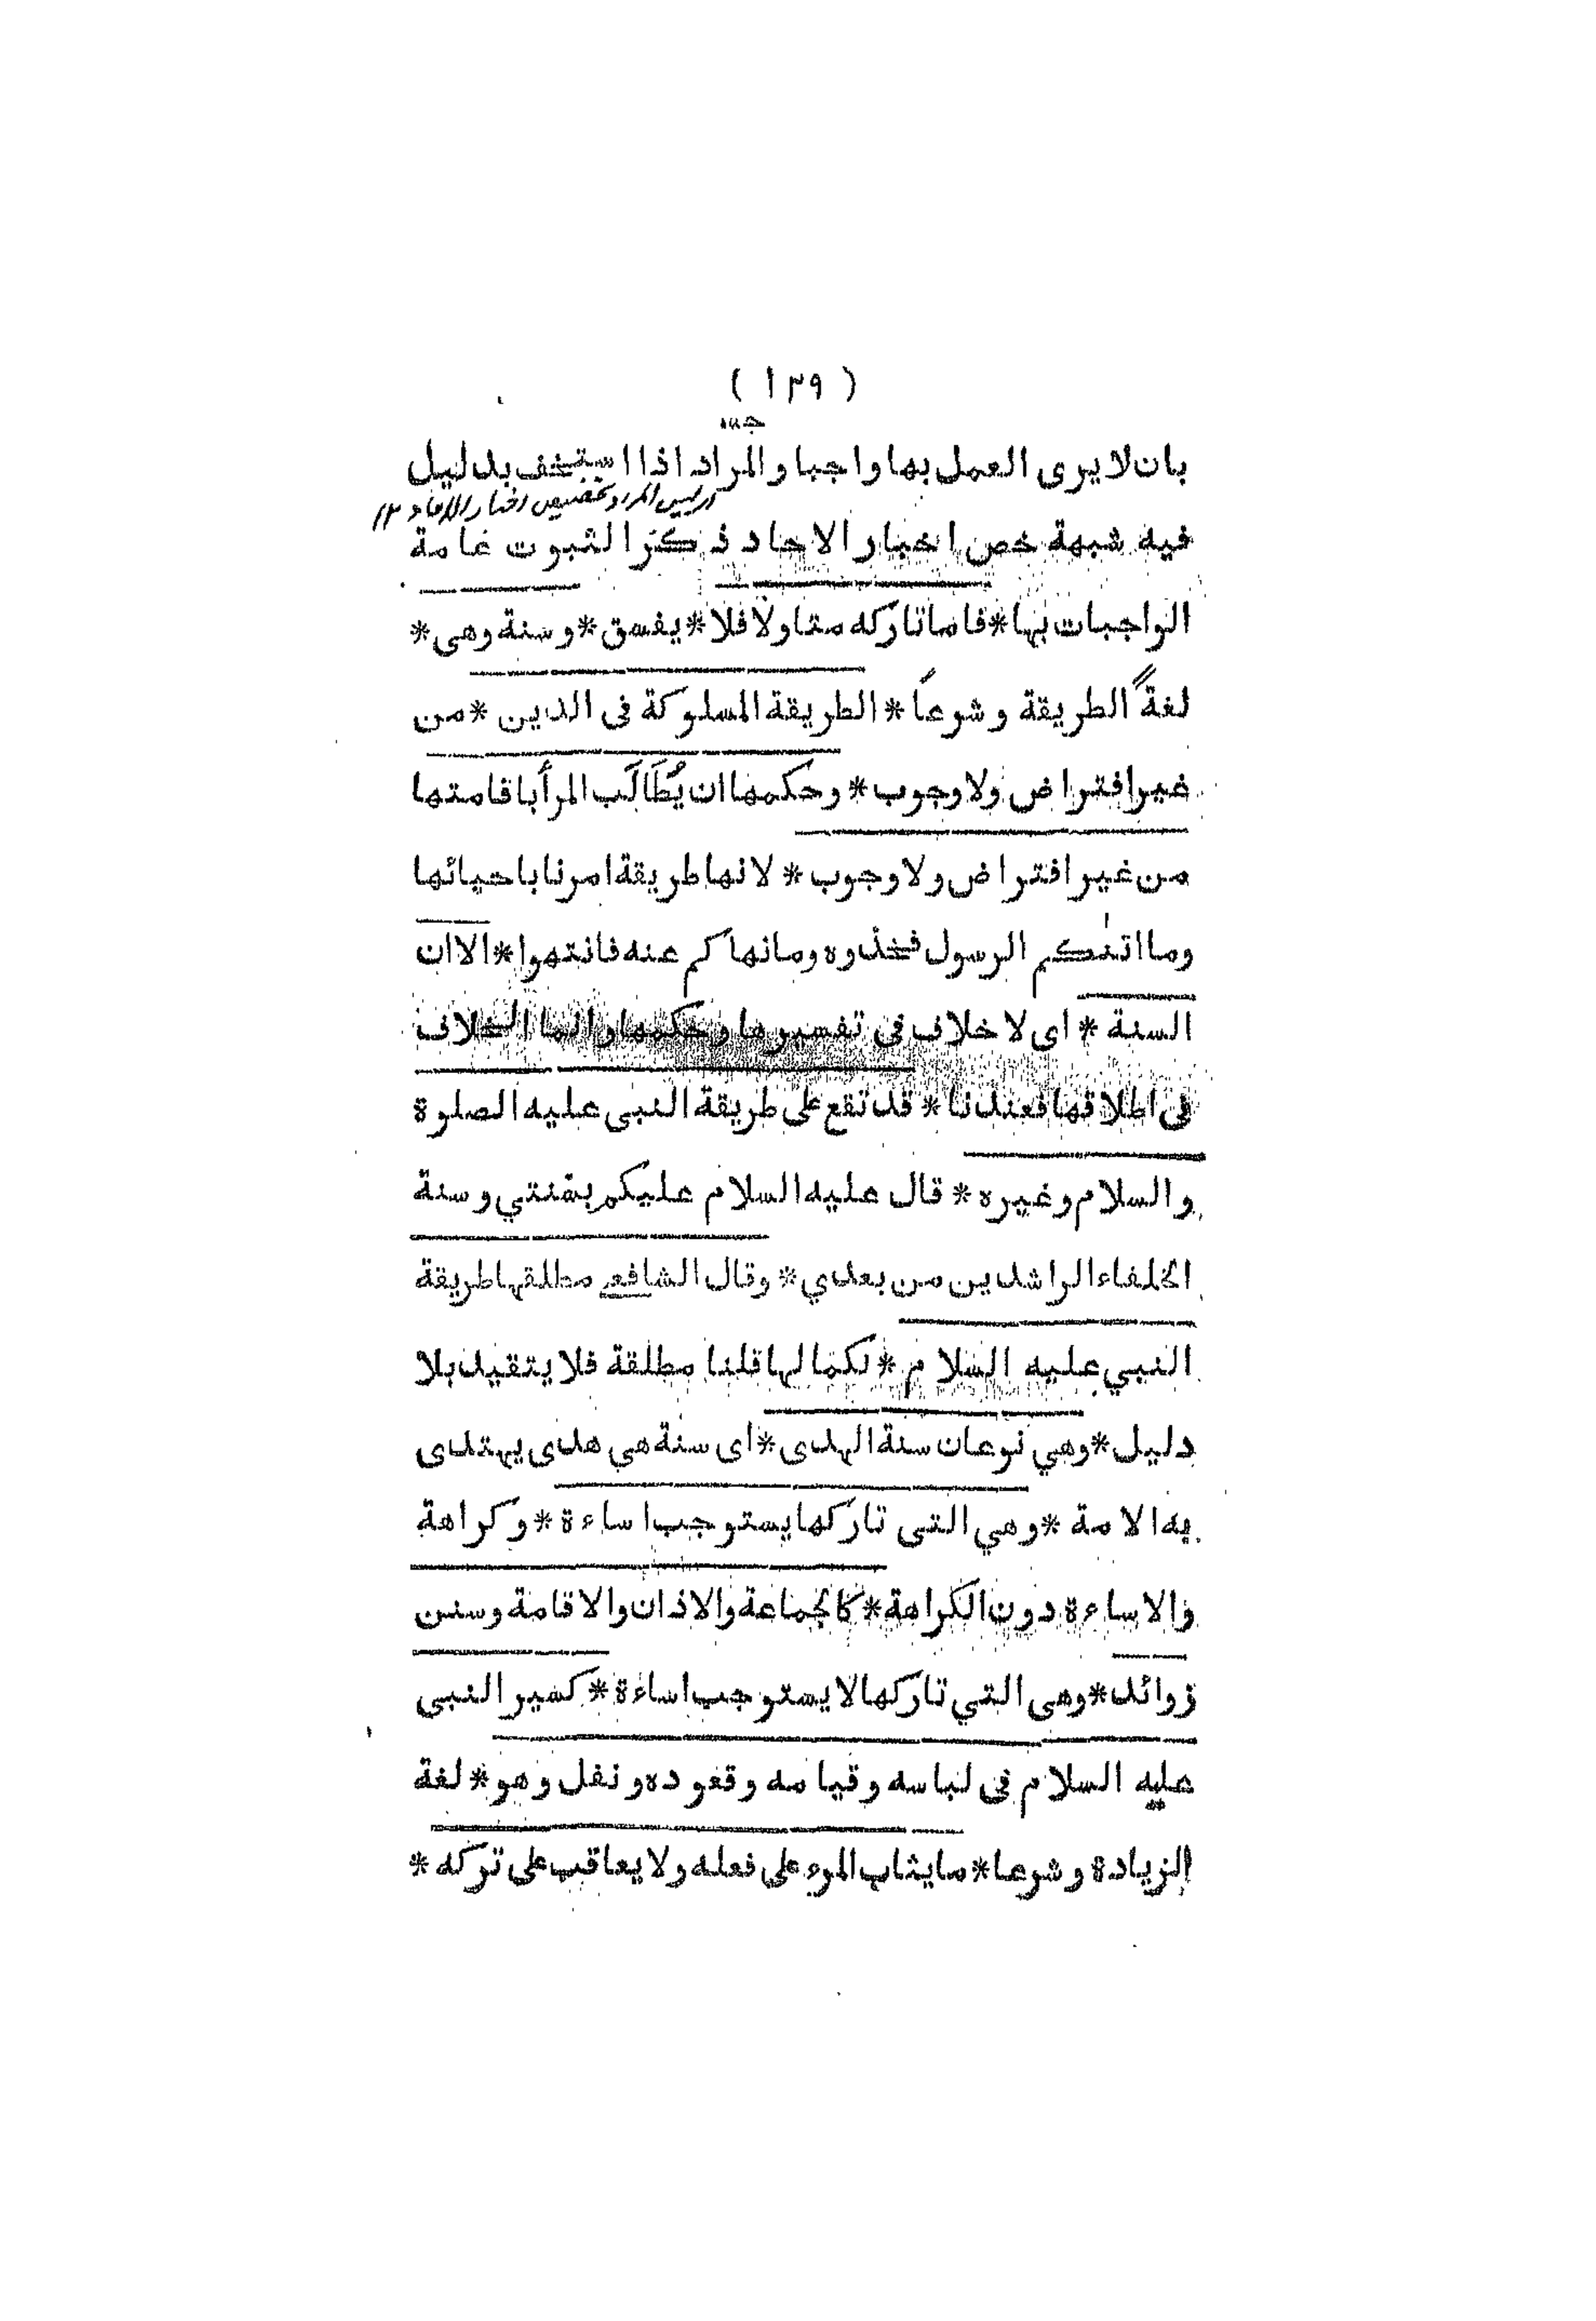 ( ١٣٩ )
بان لا يرى العمل بها واجبا والمراد اذا استخف بدليل
فيه شبهة خص اخبار الاحاد ذكر الثبوت عامة
الواجبات بها * فاما تاركه متاولا فلا * يفسق * وسنة وهى *
لغةً الطريقة وشوعاً * الطريقة المسلوكة فى الدين * من
غير افتراض ولا وجوب * وحكمها ان يُطَالَب المرأ باقامتها
من غير افتراض ولا وجوب * لانها طريقة امرنا باحيائها
وما اتٰىكم الرسول فخذوه وما نهاكم عنه فانتهوا * الا ان
السنة * اى لا خلاف فى تفسيرها وحكمها وانما الخلاف
فى اطلاقها فعندنا * قد تقع على طريقة النبى عليه الصلوة
والسلام وغيره * قال عليه السلام عليكم بسنتي وسنة
الخلفاء الراشدين من بعدي * وقال الشافعى مطلقها طريقة
النبي عليه السلام * لكمالها قلنا مطلقة فلا يتقيد بلا
دليل * وهي نوعان سنة الهدى * اى سنة هي هدى يهتدى
به الامة * وهي التى تاركها يستوجب اساءة * وكراهة
والاساءة دون الكراهة * كالجماعة والاذان والاقامة وسنن
زوائد * وهى التي تاركها لا يستوجب اساءة * كسير النبى
عليه السلام فى لباسه وقيامه وقعوده ونفل وهو * لغة
الزيادة وشرعا * ما يثاب المرء على فعله ولا يعاقب على تركه *